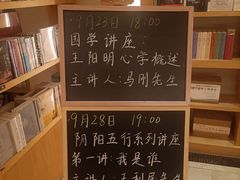 9月23日 18:00
国学讲座：
王阳明心学概述
主讲人：马刚先生
9月28日 19:00
阴阳五行系列讲座
第一讲：我是谁
主讲人：王利民先生